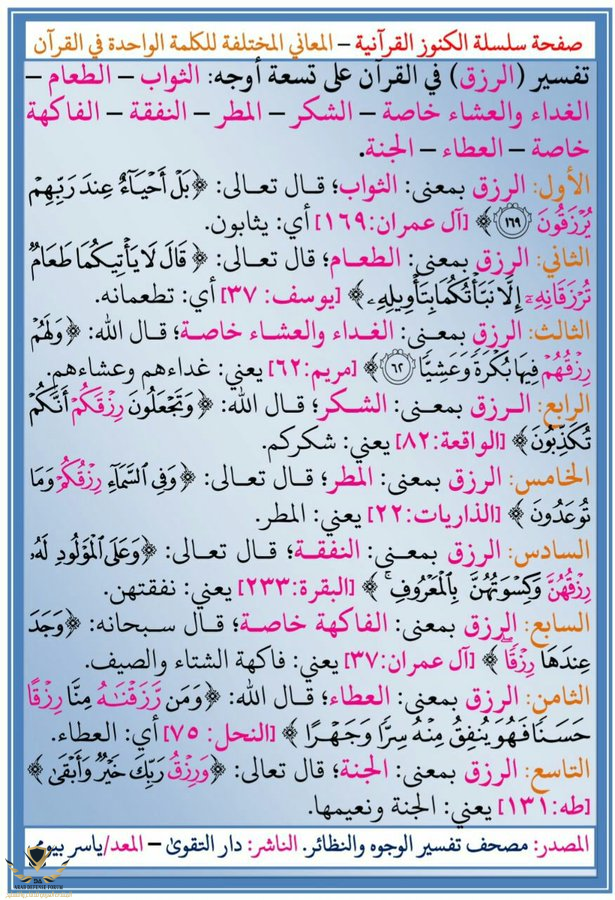 صفحة سلسلة الكنوز القرآنية – المعاني المختلفة للكلمة الواحدة في القرآن
تفسير (الرزق) في القرآن على تسعة أوجه: الثواب – الطعام –
الغداء والعشاء خاصة – الشكر – المطر – النفقة – الفاكهة
خاصة – العطاء – الجنة.
الأول: الرزق بمعنى: الثواب؛ قال تعالى: ﴿بَلْ أَحْيَآءٌ عِندَ رَبِّهِمْ
يُرْزَقُونَ ١٦٩﴾ [آل عمران:١٦٩] أي: يثابون.
الثاني: الرزق بمعنى: الطعام؛ قال تعالى: ﴿قَالَ لَا يَأْتِيكُمَا طَعَامٌ
تُرْزَقَانِهِۦٓ إِلَّا نَبَّأْتُكُمَا بِتَأْوِيلِهِۦ﴾ [يوسف: ٣٧] أي: تطعمانه.
الثالث: الرزق بمعنى: الغداء والعشاء خاصة؛ قال الله: ﴿وَلَهُمْ
رِزْقُهُمْ فِيهَا بُكْرَةً وَعَشِيًّا ٦٢﴾ [مريم:٦٢] يعني: غداءهم وعشاءهم.
الرابع: الرزق بمعنى: الشكر؛ قال الله: ﴿وَتَجْعَلُونَ رِزْقَكُمْ أَنَّكُمْ
تُكَذِّبُونَ﴾ [الواقعة:٨٢] يعني: شكركم.
الخامس: الرزق بمعنى: المطر؛ قال تعالى: ﴿وَفِي السَّمَآءِ رِزْقُكُمْ وَمَا
تُوعَدُونَ﴾ [الذاريات:٢٢] يعني: المطر.
السادس: الرزق بمعنى: النفقة؛ قال تعالى: ﴿وَعَلَى الْمَوْلُودِ لَهُۥ
رِزْقُهُنَّ وَكِسْوَتُهُنَّ بِالْمَعْرُوفِ ۚ﴾ [البقرة:٢٣٣] يعني: نفقتهن.
السابع: الرزق بمعنى: الفاكهة خاصة؛ قال سبحانه: ﴿وَجَدَ
عِندَهَا رِزْقًا ۖ﴾ [آل عمران:٣٧] يعني: فاكهة الشتاء والصيف.
الثامن: الرزق بمعنى: العطاء؛ قال الله: ﴿وَمَن رَّزَقْنَٰهُ مِنَّا رِزْقًا
حَسَنًا فَهُوَ يُنفِقُ مِنْهُ سِرًّا وَجَهْرًا﴾ [النحل: ٧٥] أي: العطاء.
التاسع: الرزق بمعنى: الجنة؛ قال تعالى: ﴿وَرِزْقُ رَبِّكَ خَيْرٌ وَأَبْقَىٰ﴾
[طه:١٣١] يعني: الجنة ونعيمها.
المصدر: مصحف تفسير الوجوه والنظائر. الناشر: دار التقوىٰ – المعد/ياسر بيومي
ARAB DEFENSE FORUM